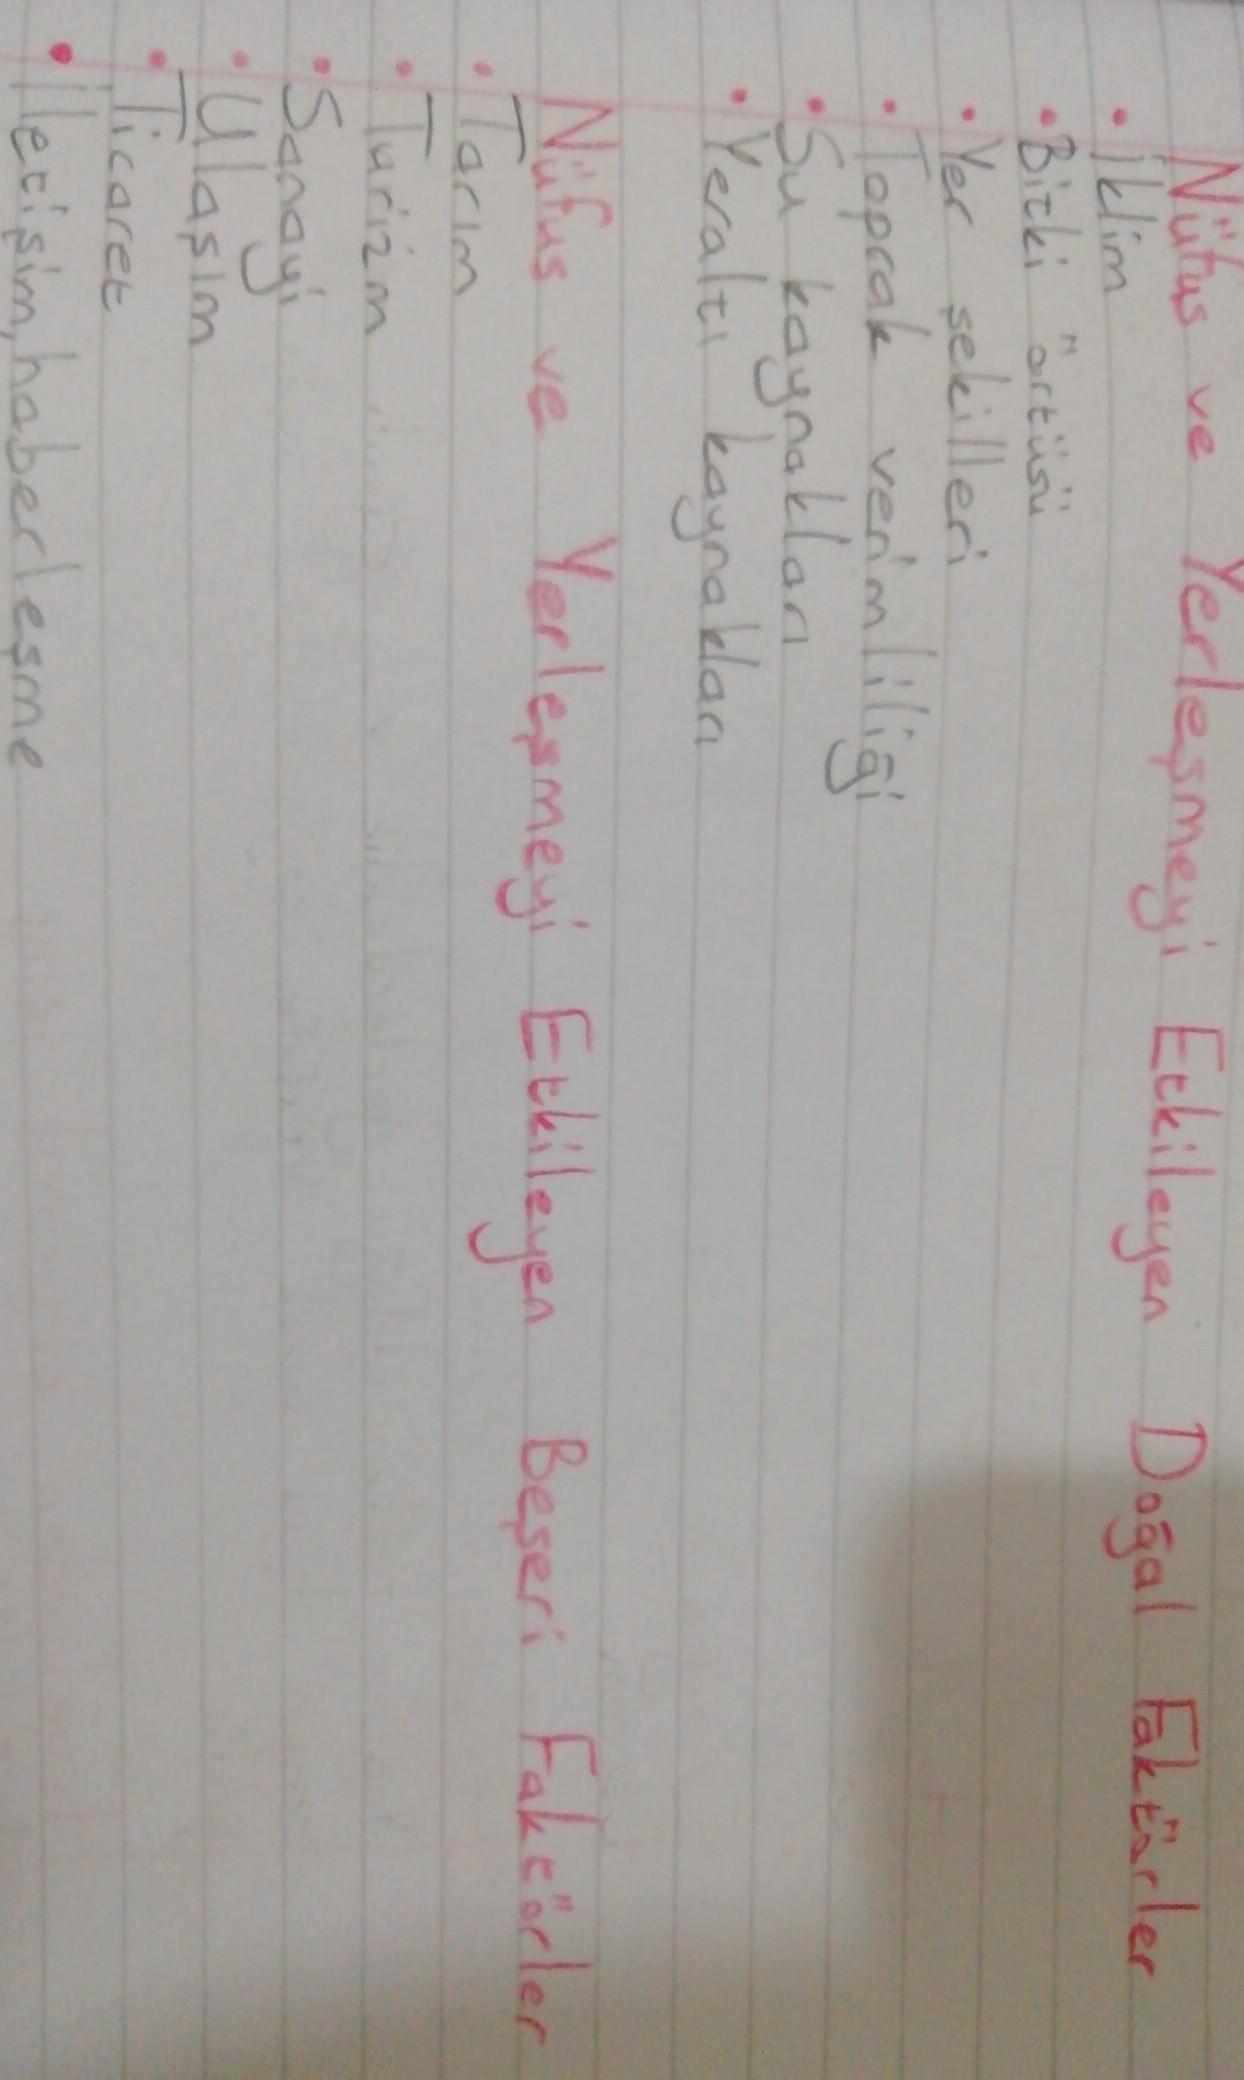 Nüfus ve Yerleşmeyi Etkileyen Doğal Faktörler
• İklim
• Bitki örtüsü
• Yer şekilleri
• Toprak verimliliği
• Su kaynakları
• Yeraltı kaynakları
Nüfus ve Yerleşmeyi Etkileyen Beşeri Faktörler
• Tarım
• Turizm
• Sanayi
• Ulaşım
• Ticaret
• İletişim, haberleşme